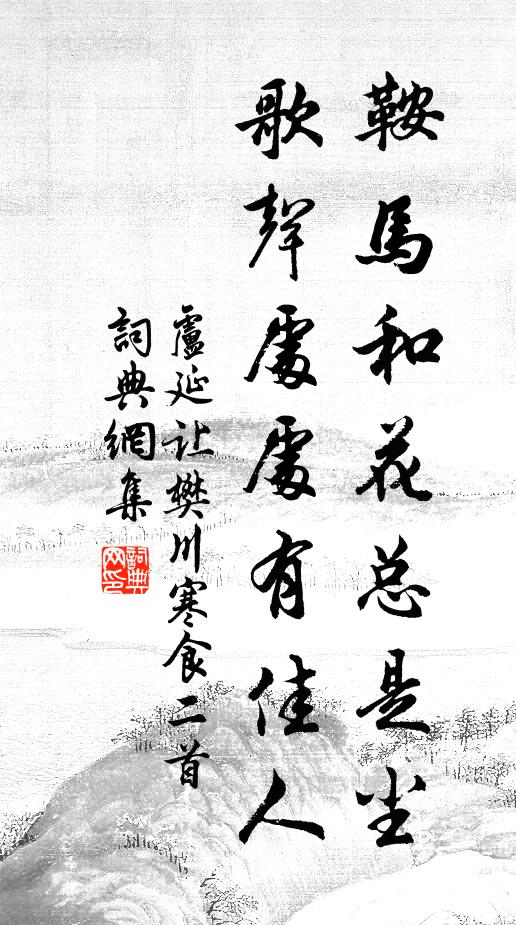 鞍馬和花总是尘
歌聲處處有佳人
盧延让樊川寒食二首
詞典網集
詞典网印